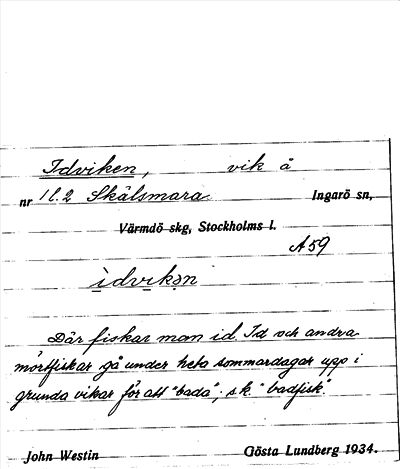 Idviken, vik å
nr 1 l. 2 Skälsmara Ingarö sn,
Värmdö skg, Stockholms l.
A 59
ìdvikən
Där fiskar man id. Id och andra
mörtfiskar gå under heta sommardagar upp i
grunda vikar för att "bada", s.k. "badfisk".
John Westin Gösta Lundberg 1934.